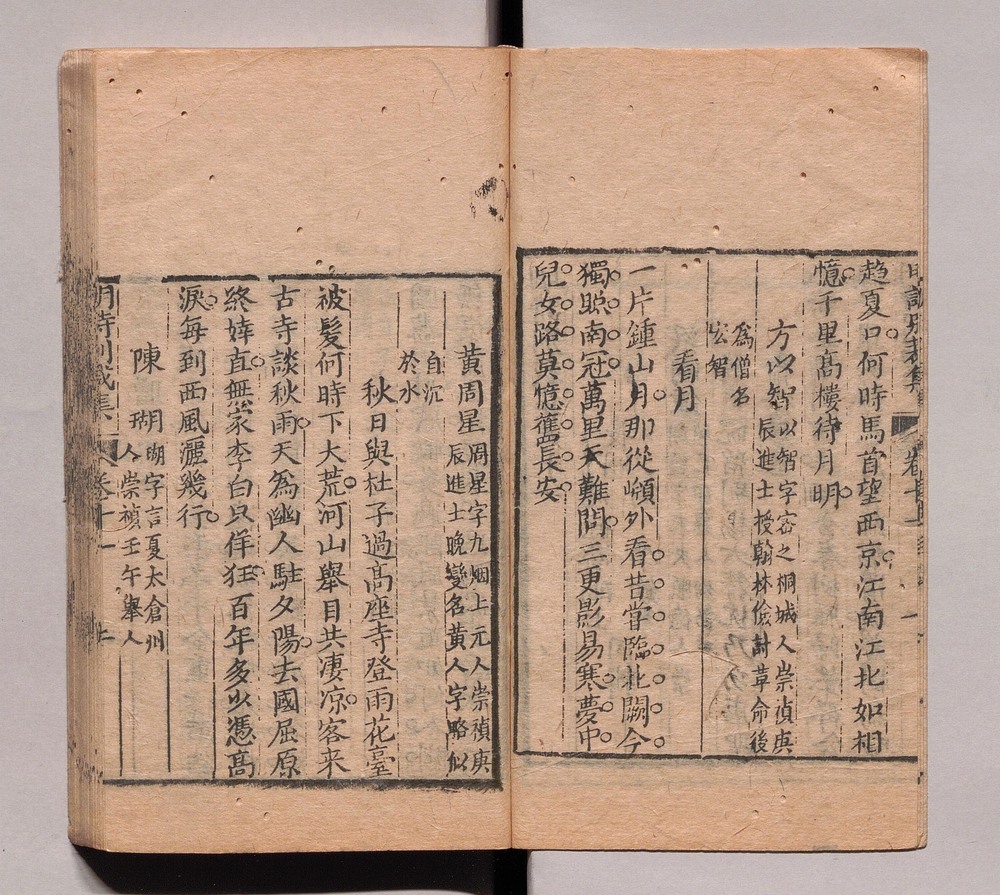 明詩別裁集 卷十一
趨夏口何時馬首望西京江南江北如相
憶千里高樓待月明
方以智以智字密之桐城人崇禎庚
辰進士授翰林儉討革命後
為僧名
宏智
看月
一片鍾山月那從嶺外看昔嘗臨北闕今
獨照南冠萬里天難問三更影易寒夢中
兒女路莫憶舊長安
黃周星周星字九烟上元人崇禎庚
辰進士晚變名黃人字略似
自沉
於水
秋日與杜子過高座寺登雨花臺
被髮何時下大荒河山舉目共凄凉客来
古寺談秋雨天為幽人駐夕陽去國屈原
終婞直無家李白只佯狂百年多少憑高
淚每到西風灑幾行
陳瑚瑚字言夏太倉州
人崇禎壬午舉人
明詩別裁集 卷十一